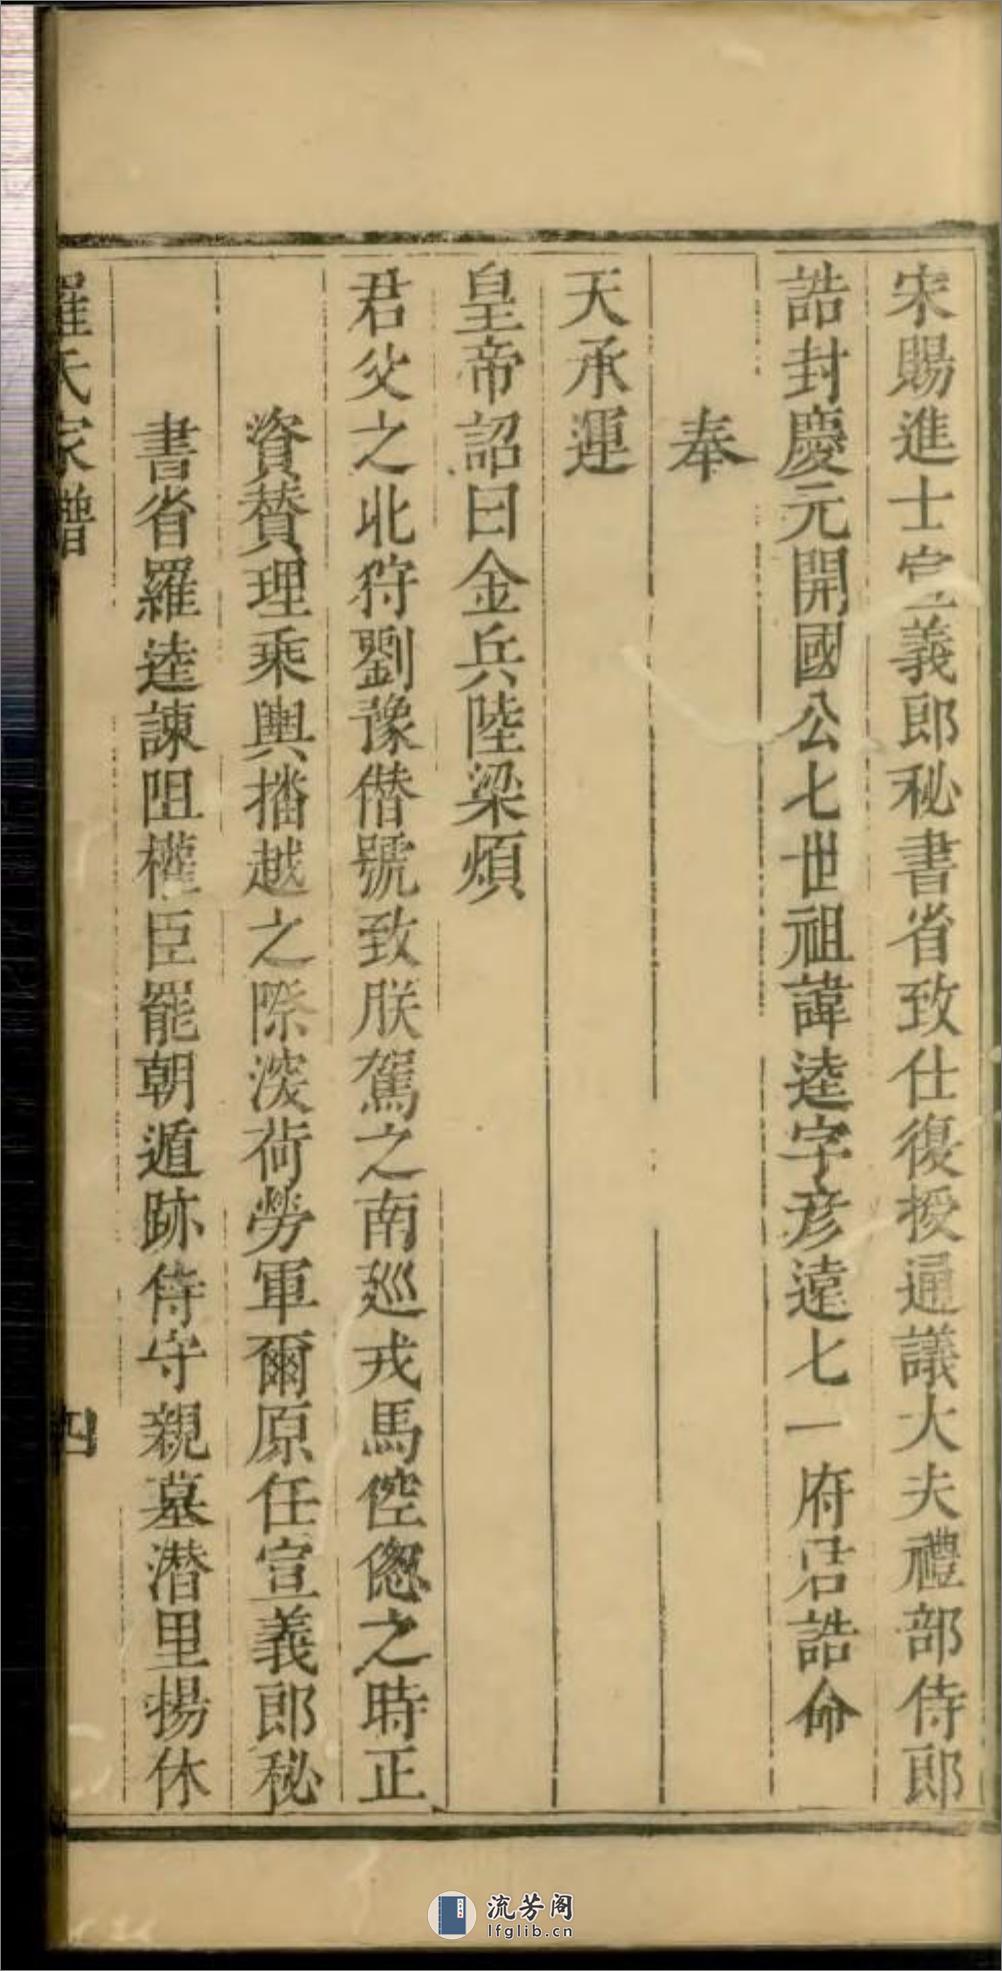 宋賜進士宣義郎秘書省致仕復授通議大夫禮部侍郎
誥封慶元開國公七世祖諱逵字彥遠七一府君誥命
奉
天承運
皇帝詔曰金兵陸梁煩
君父之北狩劉豫僣號致朕駕之南巡戎馬倥傯之時正
資贊理乘輿播越之際深荷勞軍爾原任宣義郎秘
書省羅逵諫阻權臣罷朝遁跡侍守親墓潛里揚休
羅氏家譜
四
流芳阁
lfglib.cn